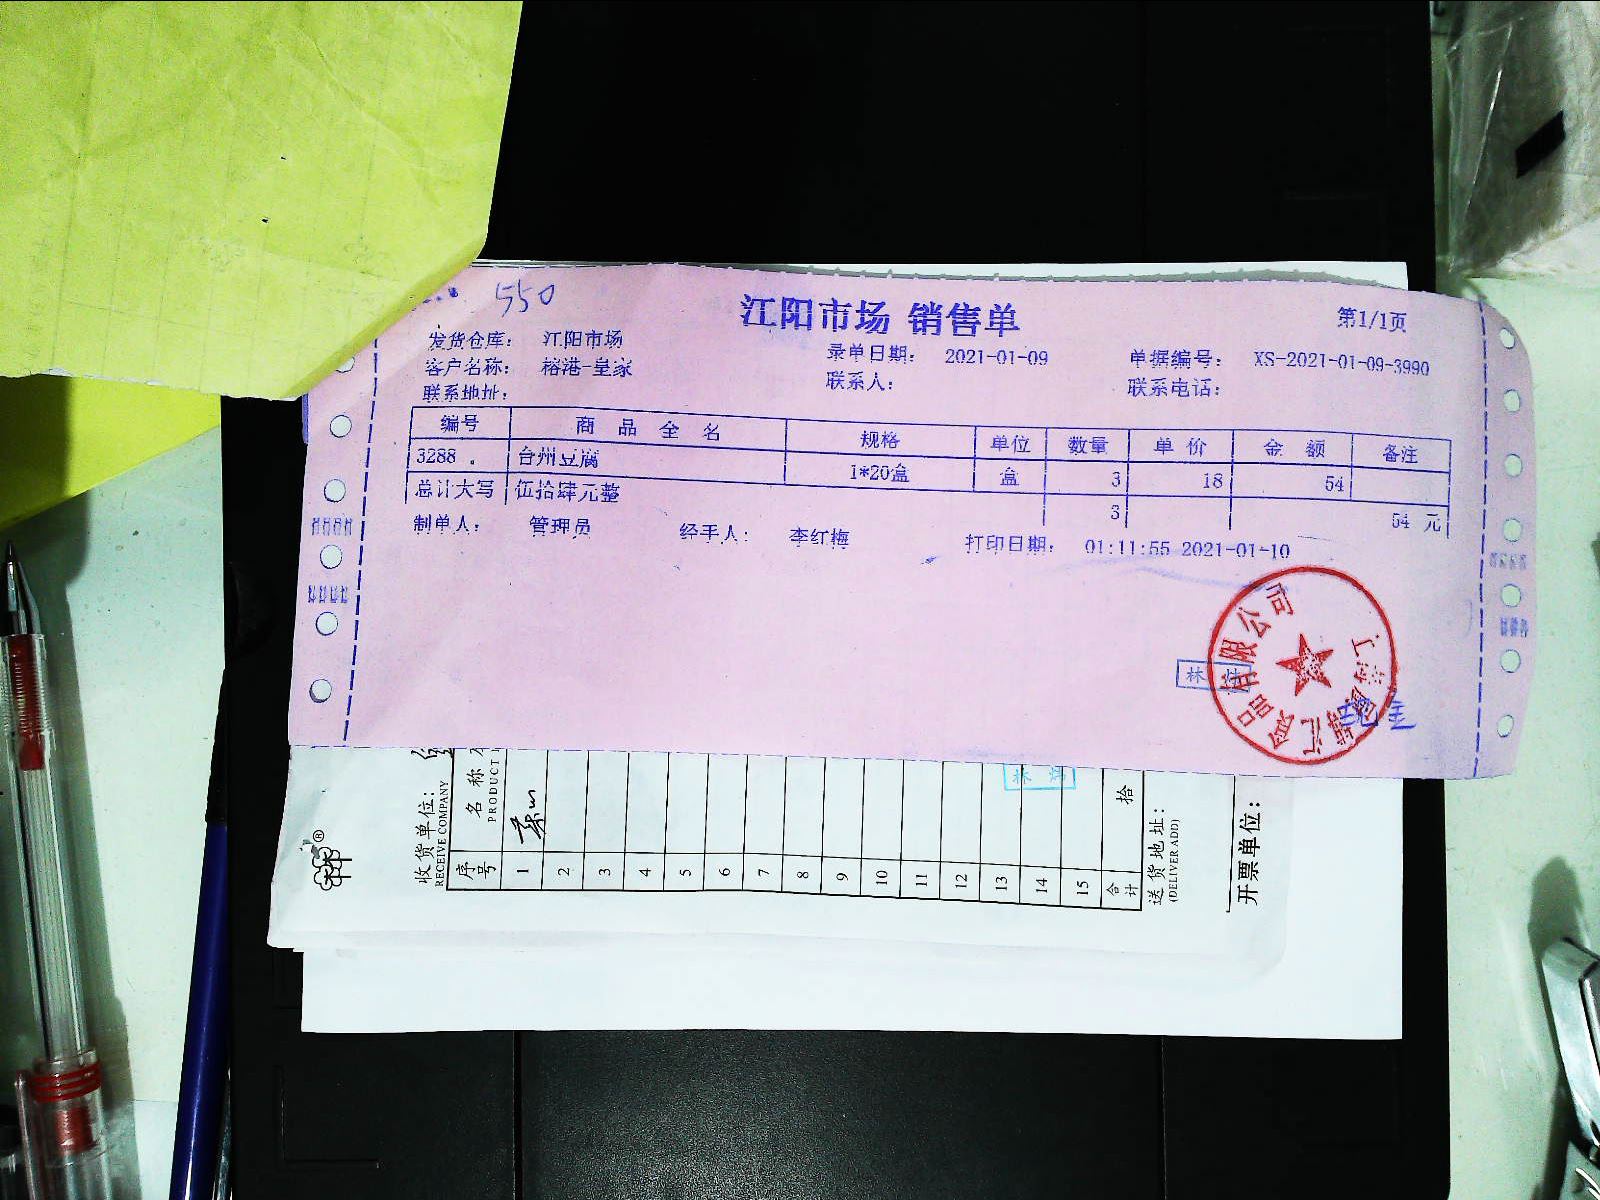 550
江阳市场 销售单
第1/1页
发货仓库: 江阳市场
录单日期: 2021-01-09
单据编号: XS-2021-01-09-3990
客户名称: 榕港-皇家
联系人:
联系电话:
联系地址:
编号 商品全名 规格 单位 数量 单价 金额 备注
3288 台州豆腐 1*20盒 盒 3 18 54
总计大写 伍拾肆元整 3 54 元
制单人: 管理员 经手人: 李红梅 打印日期: 01:11:55 2021-01-10
食品有限公司
林
收货单位:
RECEIVE COMPANY
序号
名称
PRODUCT
1
2
3
4
5
6
7
8
9
10
11
12
13
14
15
合计
拾
送货地址:
(DELIVER ADD)
开票单位: